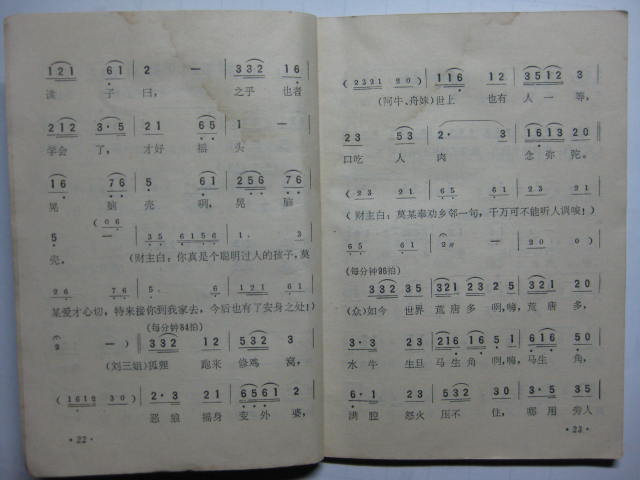 121 61 | 2 — | 332 16
读 子 曰, 之乎 也者
212 3·5 | 21 65 | 1 —
学会 了, 才好 摇 头
16 76 | 5 61 | 256 76
晃 脑 壳 啊, 晃 脑
(06
5 — | 235 216 | 1· 3
壳. (财主白:你真是个聪明过人的孩子,莫
26 76 | 5 61 | 121 61
某爱才心切,特来接你到我家去,今后也有了安身之处!)
(每分钟84拍)
2 —) | 332 12
(刘三姐)狐狸 跑来 修鸡 窝,
(1612 30) | 2·3 21 | 6561 2
恶狼 摇身 变外 婆,
·22·
(2321 20) | 116 12 | 3512 3
(阿牛、奇妹)世上 也有 人 一 等,
23 53 | 2· 3 | 1613 20
口吃 人 肉 念 弥 陀。
23 21 | 65 61 | 23 21
(财主白:莫某奉劝乡邻一句,千万可不能听人调唆!)
65 61 | 2 — | 20 0)
(每分钟96拍)
332 35 | 321 23 | 5 321 23
(众)如今 世界 荒唐 多 啊,嗨, 荒唐 多,
3·3 23
水牛 生旦 马生 角 啊,嗨, 马生 角,
2·3 53 | 32 30 | 3·5 35
满腔 怒火 压不 住, 哪用 旁人
·23·